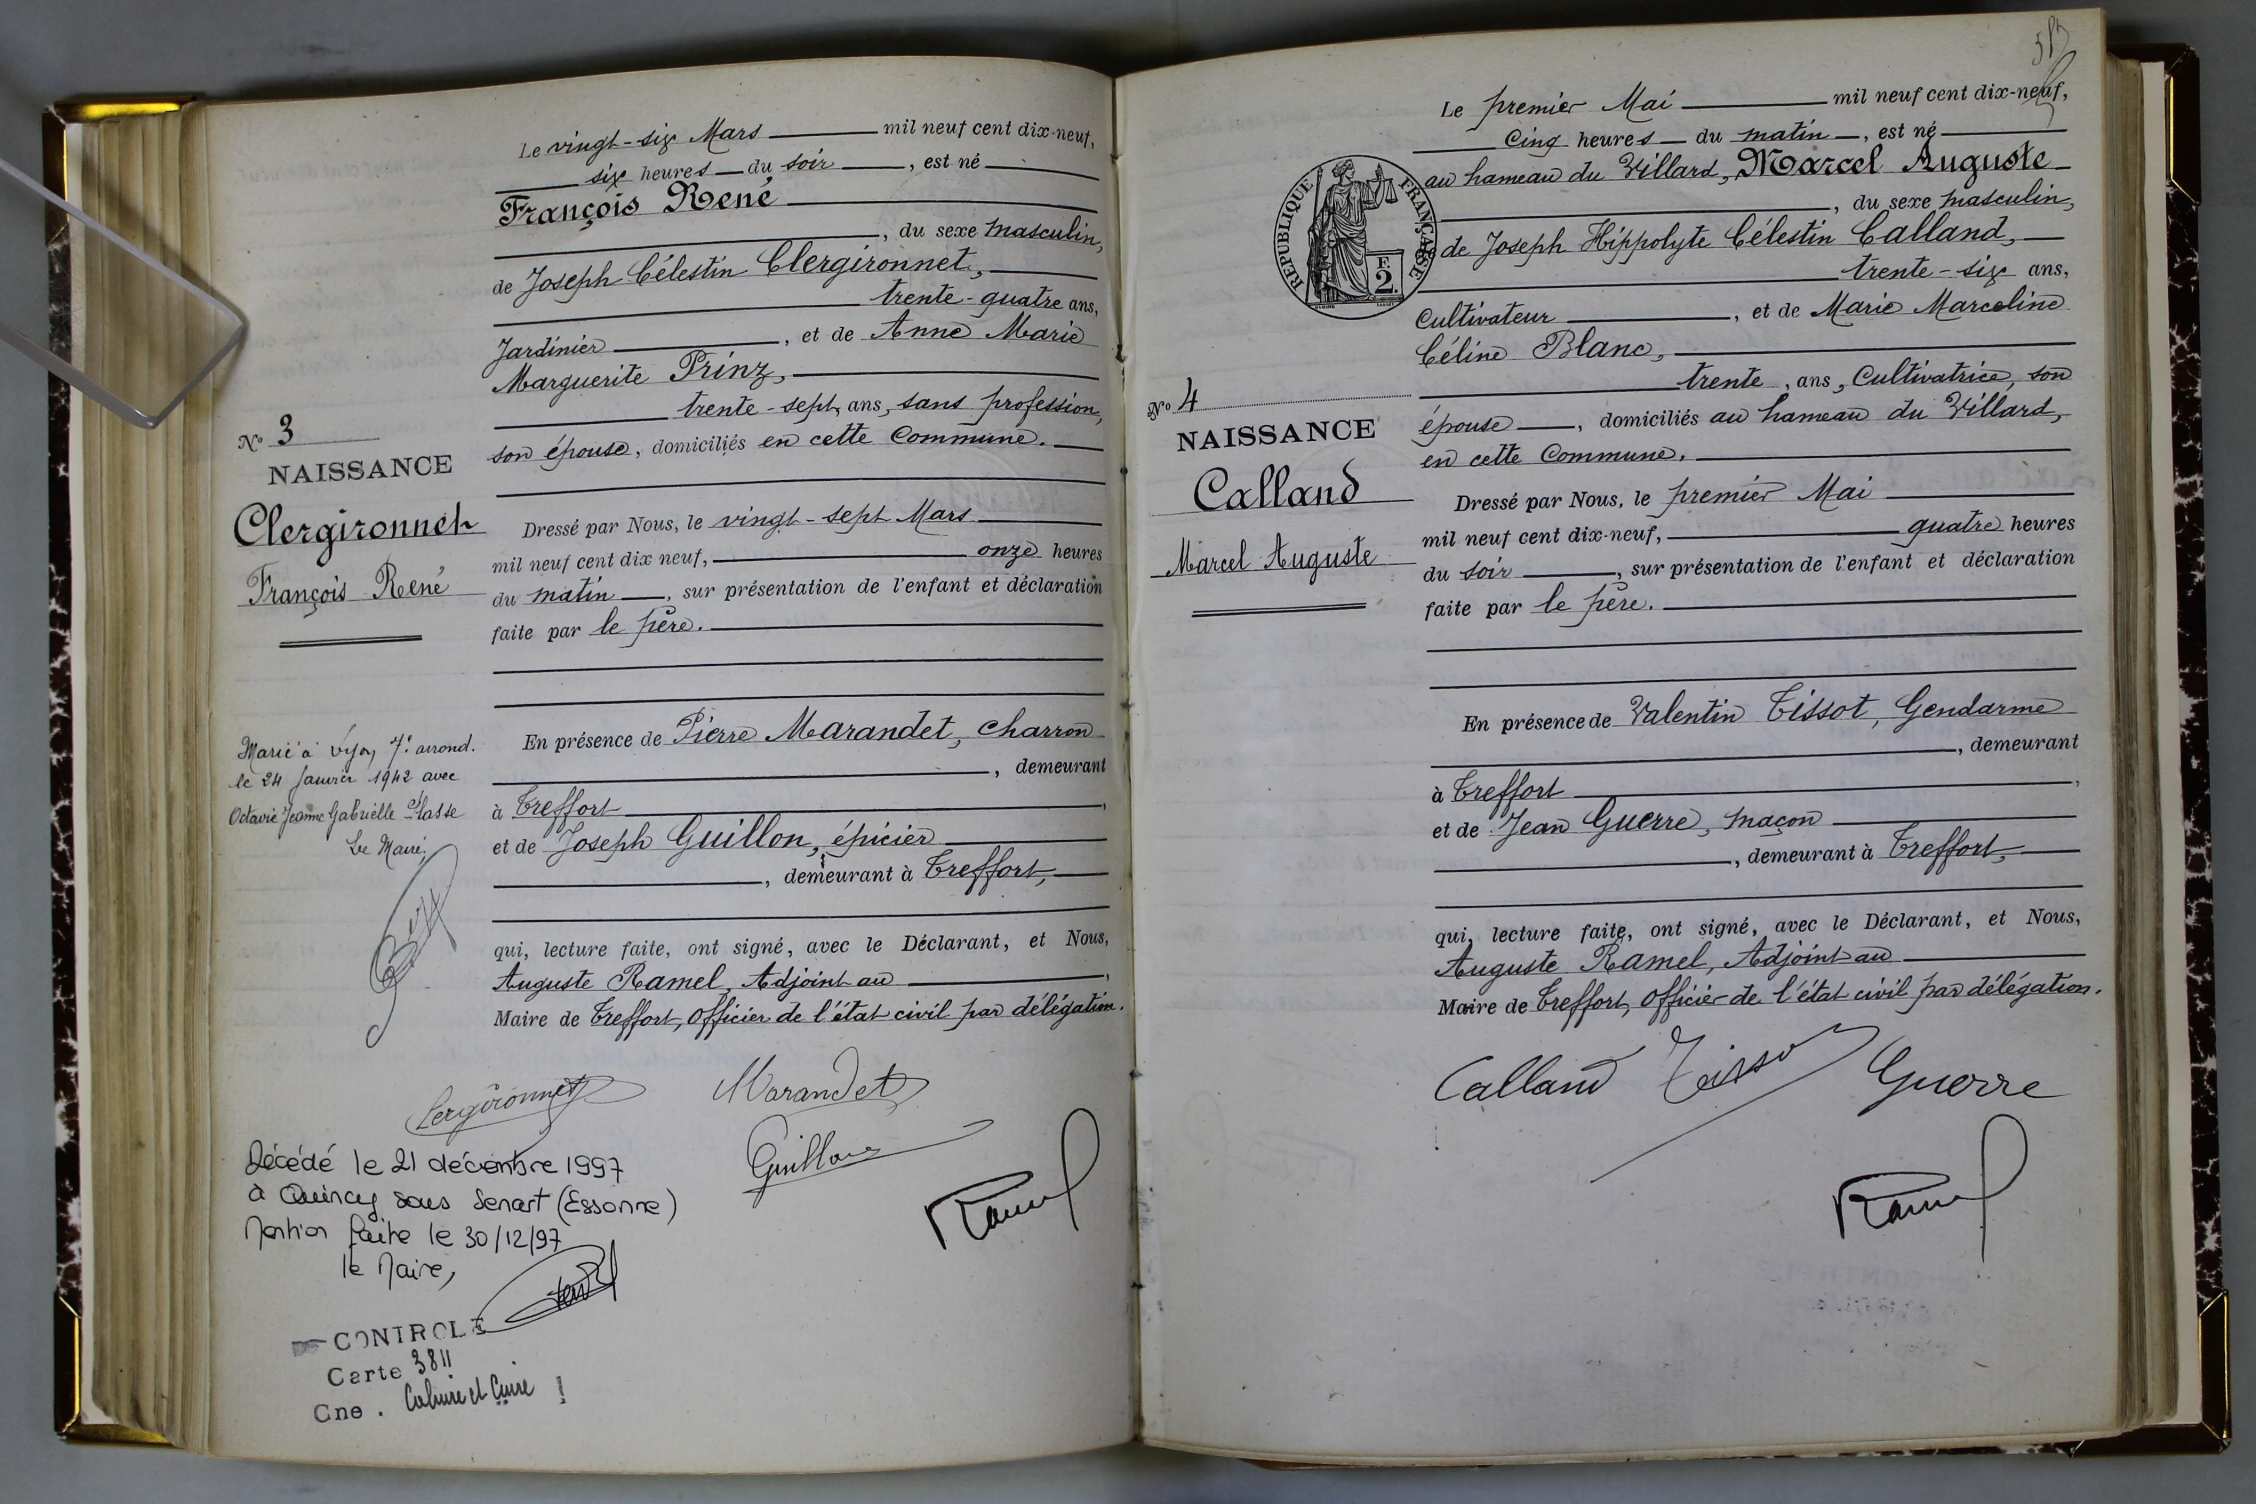 Le vingt-six Mars mil neuf cent dix-neuf,
six heures du soir, est né
François René
, du sexe masculin,
de Joseph Célestin Clergironnet,
trente-quatre ans,
Jardinier, et de Anne Marie
Marguerite Prinz,
trente-sept, ans, sans profession,
son épouse, domiciliés en cette Commune.
Nº 3
NAISSANCE
Clergironnet
François René
Dressé par Nous, le vingt-sept Mars
mil neuf cent dix neuf, onze heures
du matin, sur présentation de l'enfant et déclaration
faite par le père.
Marié à Lyon 7e arrond.
le 24 Janvier 1942 avec
Octavie Jeanne Gabrielle
Le Maire,
En présence de Pierre Marandet, charron
, demeurant
à Treffort,
et de Joseph Guillon, épicier
, demeurant à Treffort,
qui, lecture faite, ont signé, avec le Déclarant, et Nous,
Auguste Ramel, Adjoint au,
Maire de Treffort, Officier de l'état civil par délégation.
Clergironnet Marandet
Guillon
Ramel
Décédé le 21 décembre 1997
à Quincy sous Senart (Essonne)
Mention faite le 30/12/97
le Maire,
CONTROLE
Carte 3811
Cne. Caluire et Cuire
Le premier Mai mil neuf cent dix-neuf,
Cinq heures du matin, est né
au hameau du Villard, Marcel Auguste
, du sexe masculin,
de Joseph Hippolyte Célestin Calland,
trente-six ans,
Cultivateur, et de Marie Marceline
Céline Blanc,
trente, ans, Cultivatrice, son
épouse, domiciliés au hameau du Villard,
en cette Commune.
RÉPUBLIQUE FRANÇAISE
F.
2.
Nº 4
NAISSANCE
Calland
Marcel Auguste
Dressé par Nous, le premier Mai
mil neuf cent dix-neuf, quatre heures
du soir, sur présentation de l'enfant et déclaration
faite par le père.
En présence de Valentin Tissot, Gendarme
, demeurant
à Treffort,
et de Jean Guerre, maçon
, demeurant à Treffort,
qui, lecture faite, ont signé, avec le Déclarant, et Nous,
Auguste Ramel, Adjoint au
Maire de Treffort, Officier de l'état civil par délégation.
Calland Tissot Guerre
Ramel